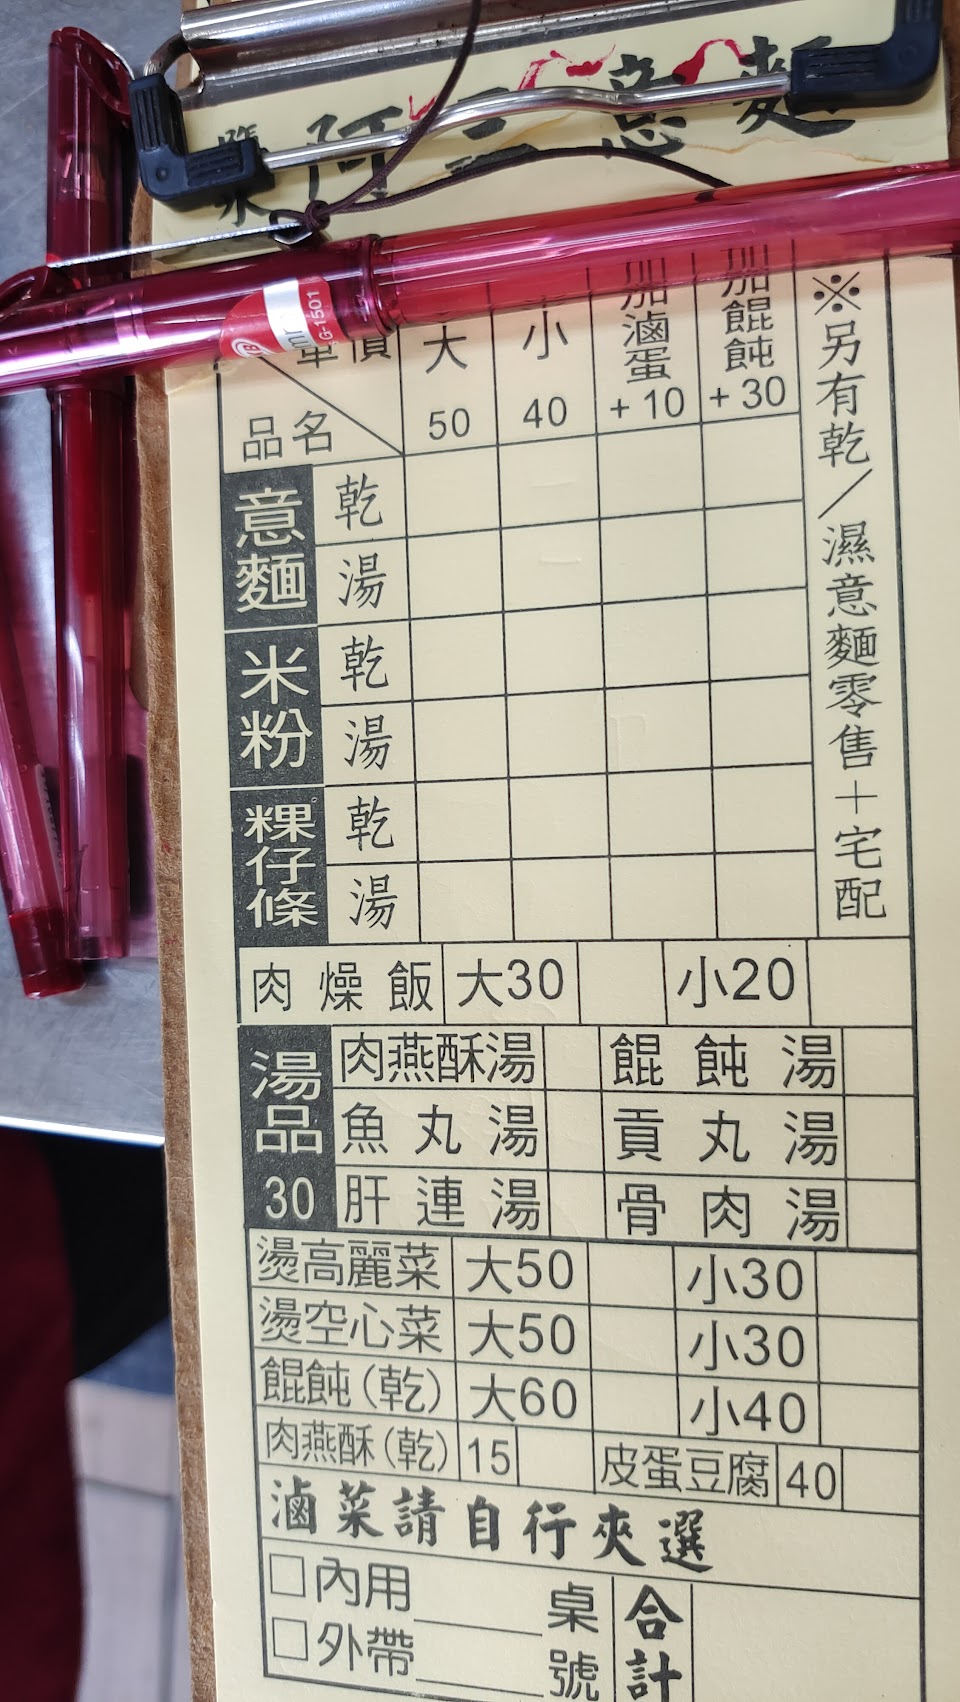 鹽水 阿三意麵
G-1501
單價
大
小
加滷蛋
加餛飩
品名
50
40
+10
+30
意麵
乾
湯
米粉
乾
湯
粿仔條
乾
湯
※另有乾/濕意麵零售+宅配
肉燥飯 大30 小20
湯品 30
肉燕酥湯 餛飩湯
魚丸湯 貢丸湯
肝連湯 骨肉湯
燙高麗菜 大50 小30
燙空心菜 大50 小30
餛飩(乾) 大60 小40
肉燕酥(乾) 15 皮蛋豆腐 40
滷菜請自行夾選
□內用 桌號
□外帶
合計